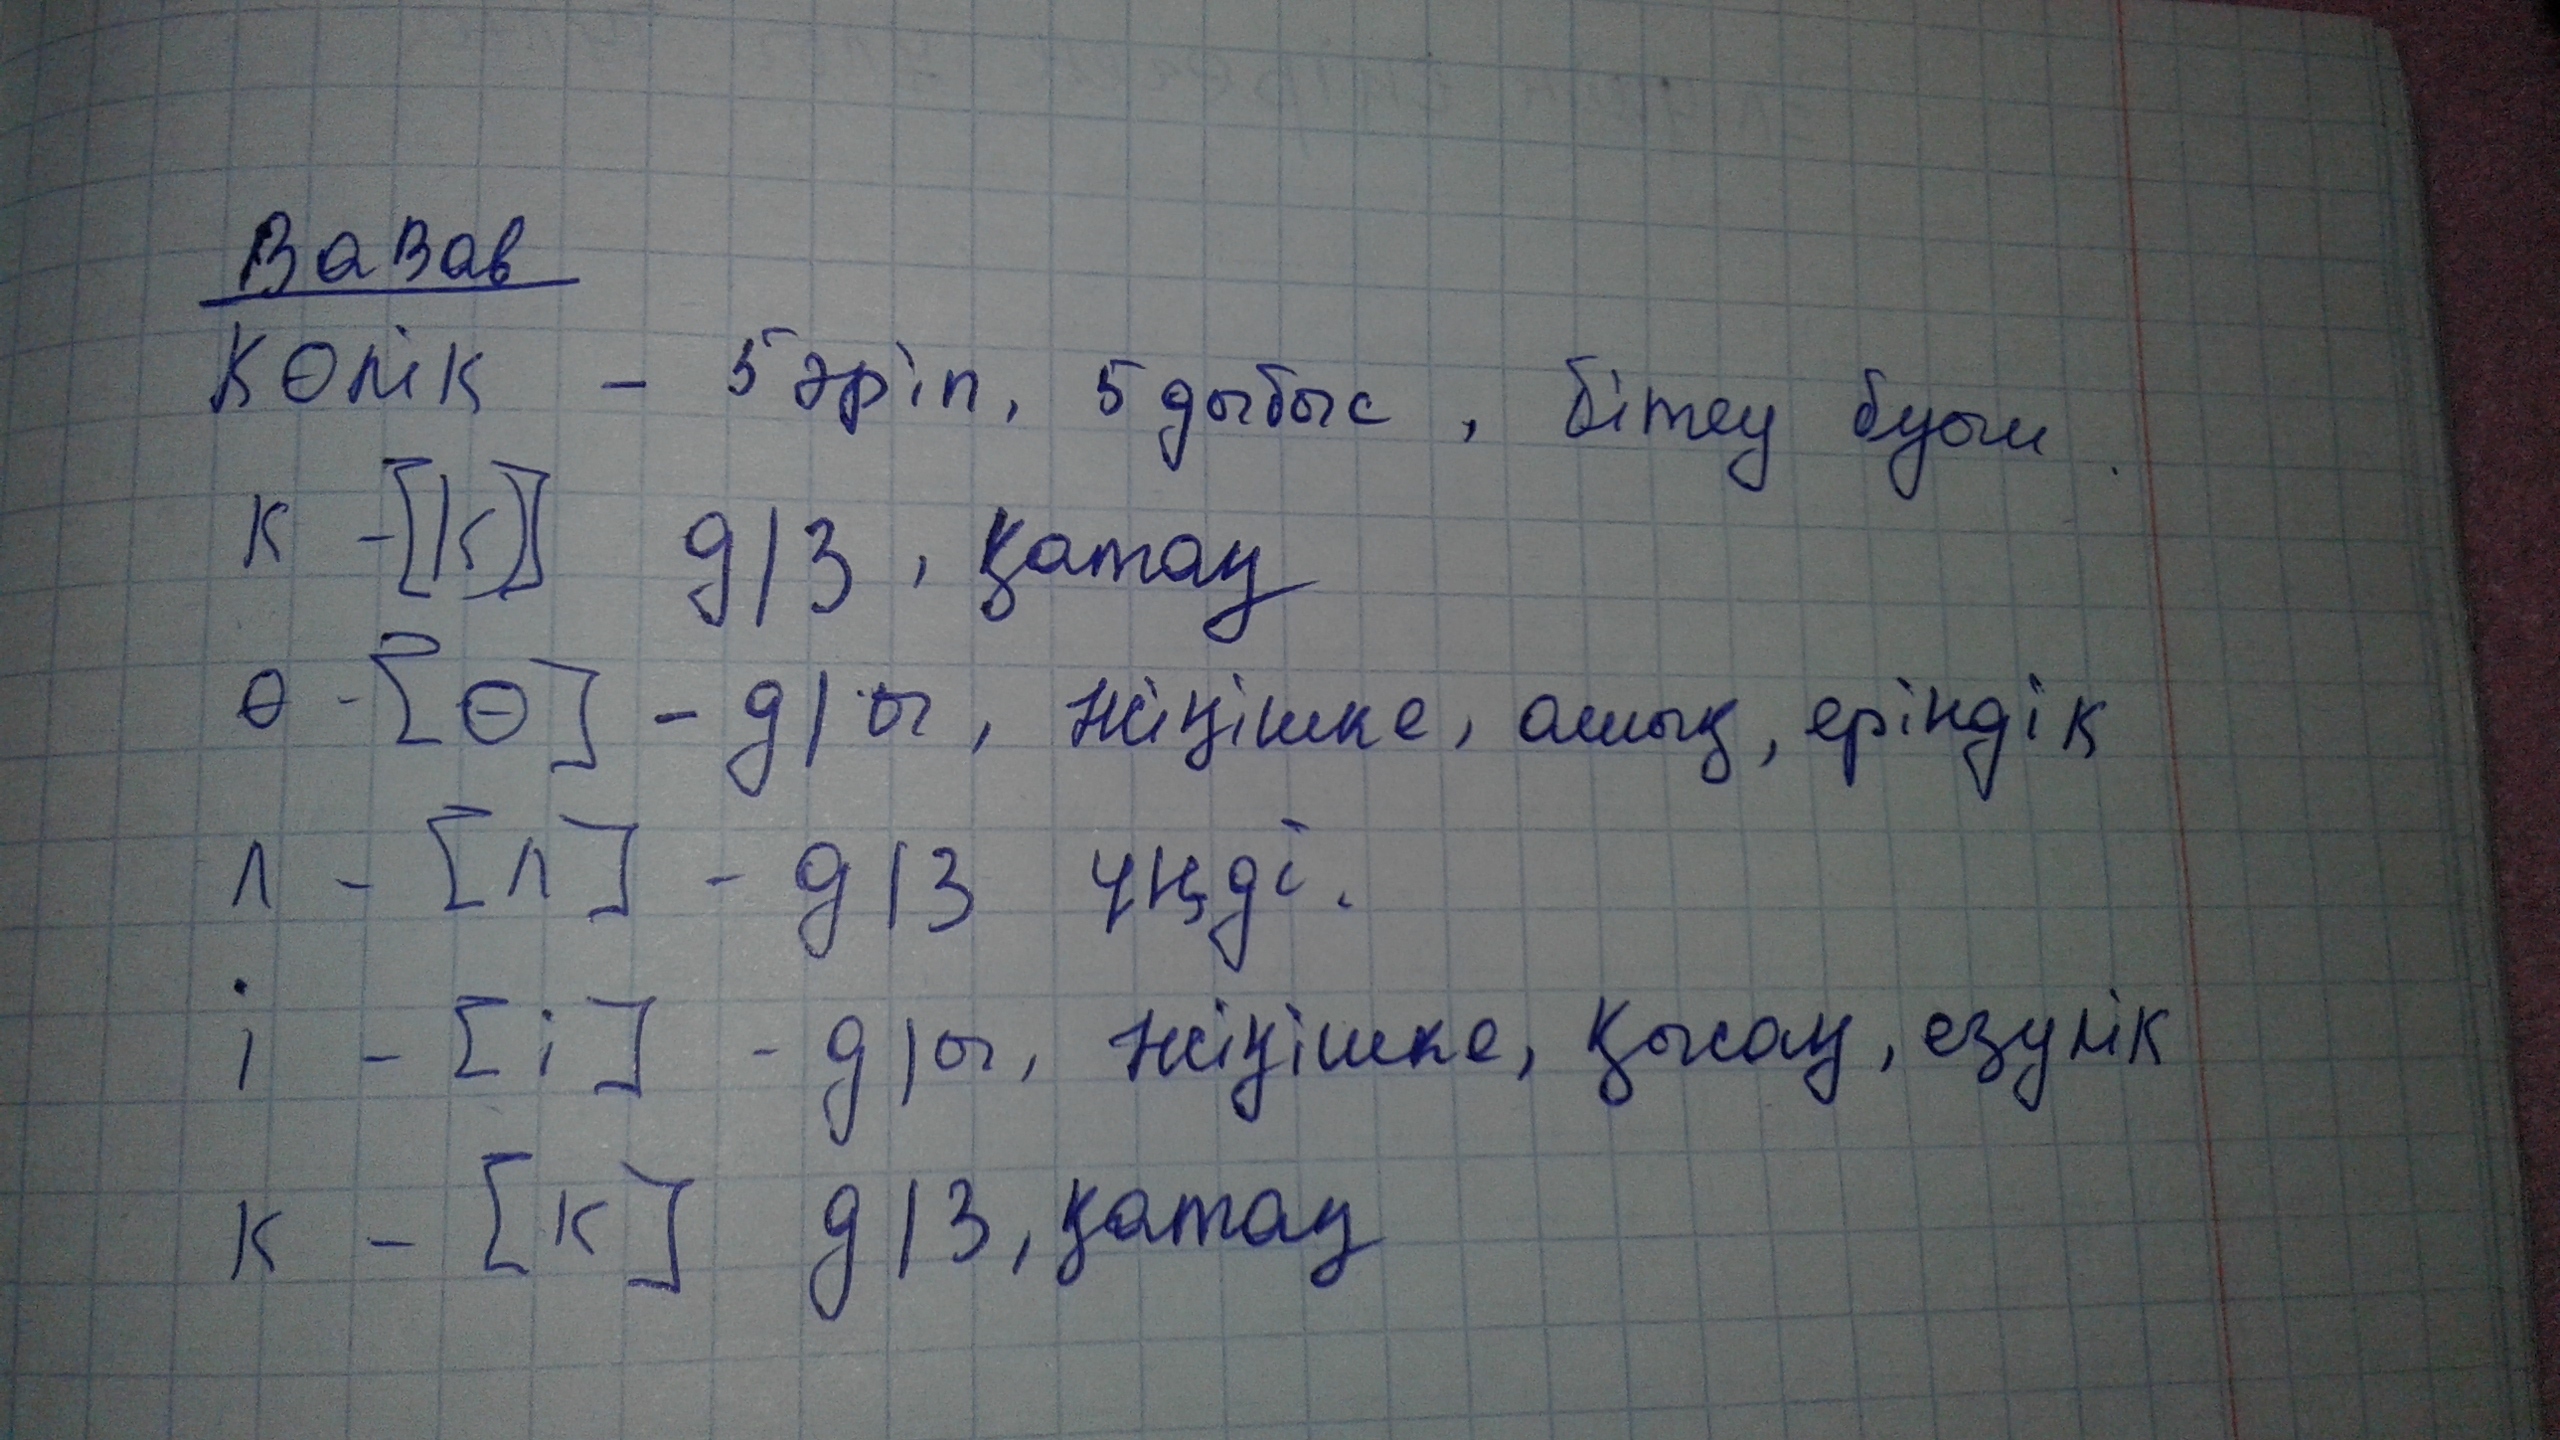 Вавав
Көлік - 5 әріп, 5 дыбыс, бітеу буын
к - [к] д/з, қатаң
ө - [ө] - д/ы, жіңішке, ашық, еріндік
л - [л] - д/з үнді.
і - [і] - д/ы, жіңішке, қысаң, езулік
к - [к] д/з, қатаң